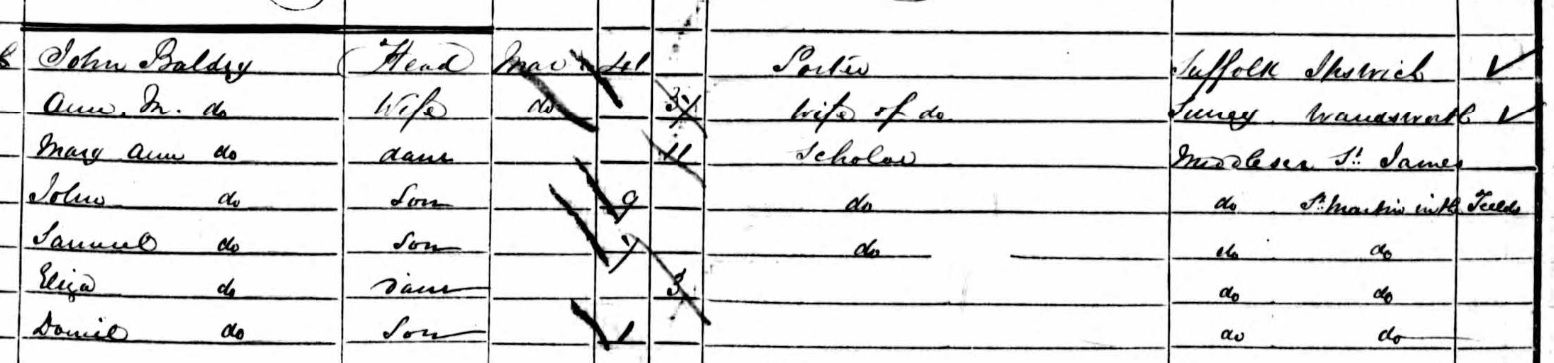 John Baldry Head Mar 41 Porter Suffolk Ipswich
Ann. M. do Wife do Wife of do Surrey Wandsworth
Mary Ann do daur 11 Scholar Middlesex St. James
John do Son 9 do do St. Martin in the Fields
Samuel do Son 7 do do do
Eliza do Daur 3 do do
Daniel do Son 1 do do